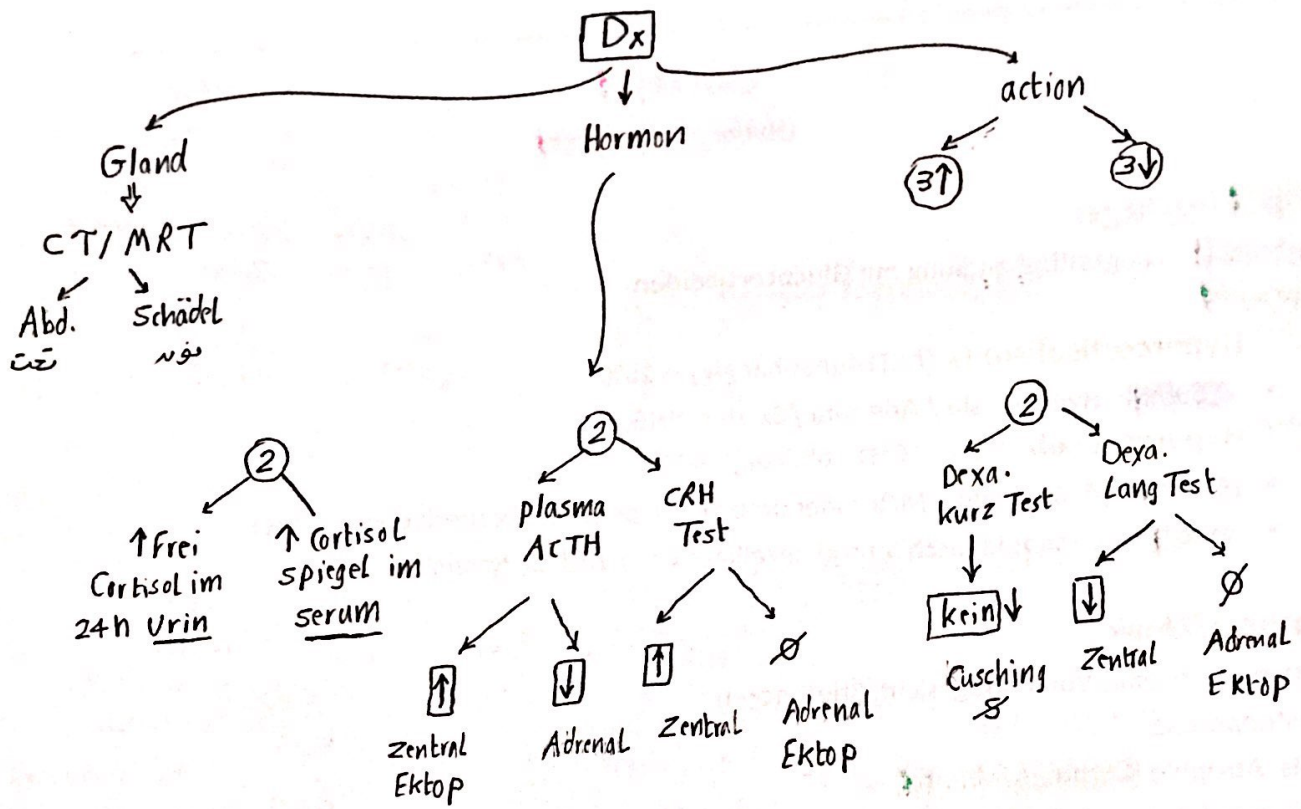 Dx
Gland
CT/MRT
Abd.
تحت
Schädel
فوق
Hormon
action
3↑
3↓
2
↑Frei
Cortisol im
24h Urin
↑ Cortisol
spiegel im
serum
2
plasma
ACTH
↑
Zentral
Ektop
↓
Adrenal
CRH
Test
↑
Zentral
∅
Adrenal
Ektop
2
Dexa.
kurz Test
kein ↓
Cusching
Dexa.
Lang Test
↓
Zentral
∅
Adrenal
Ektop